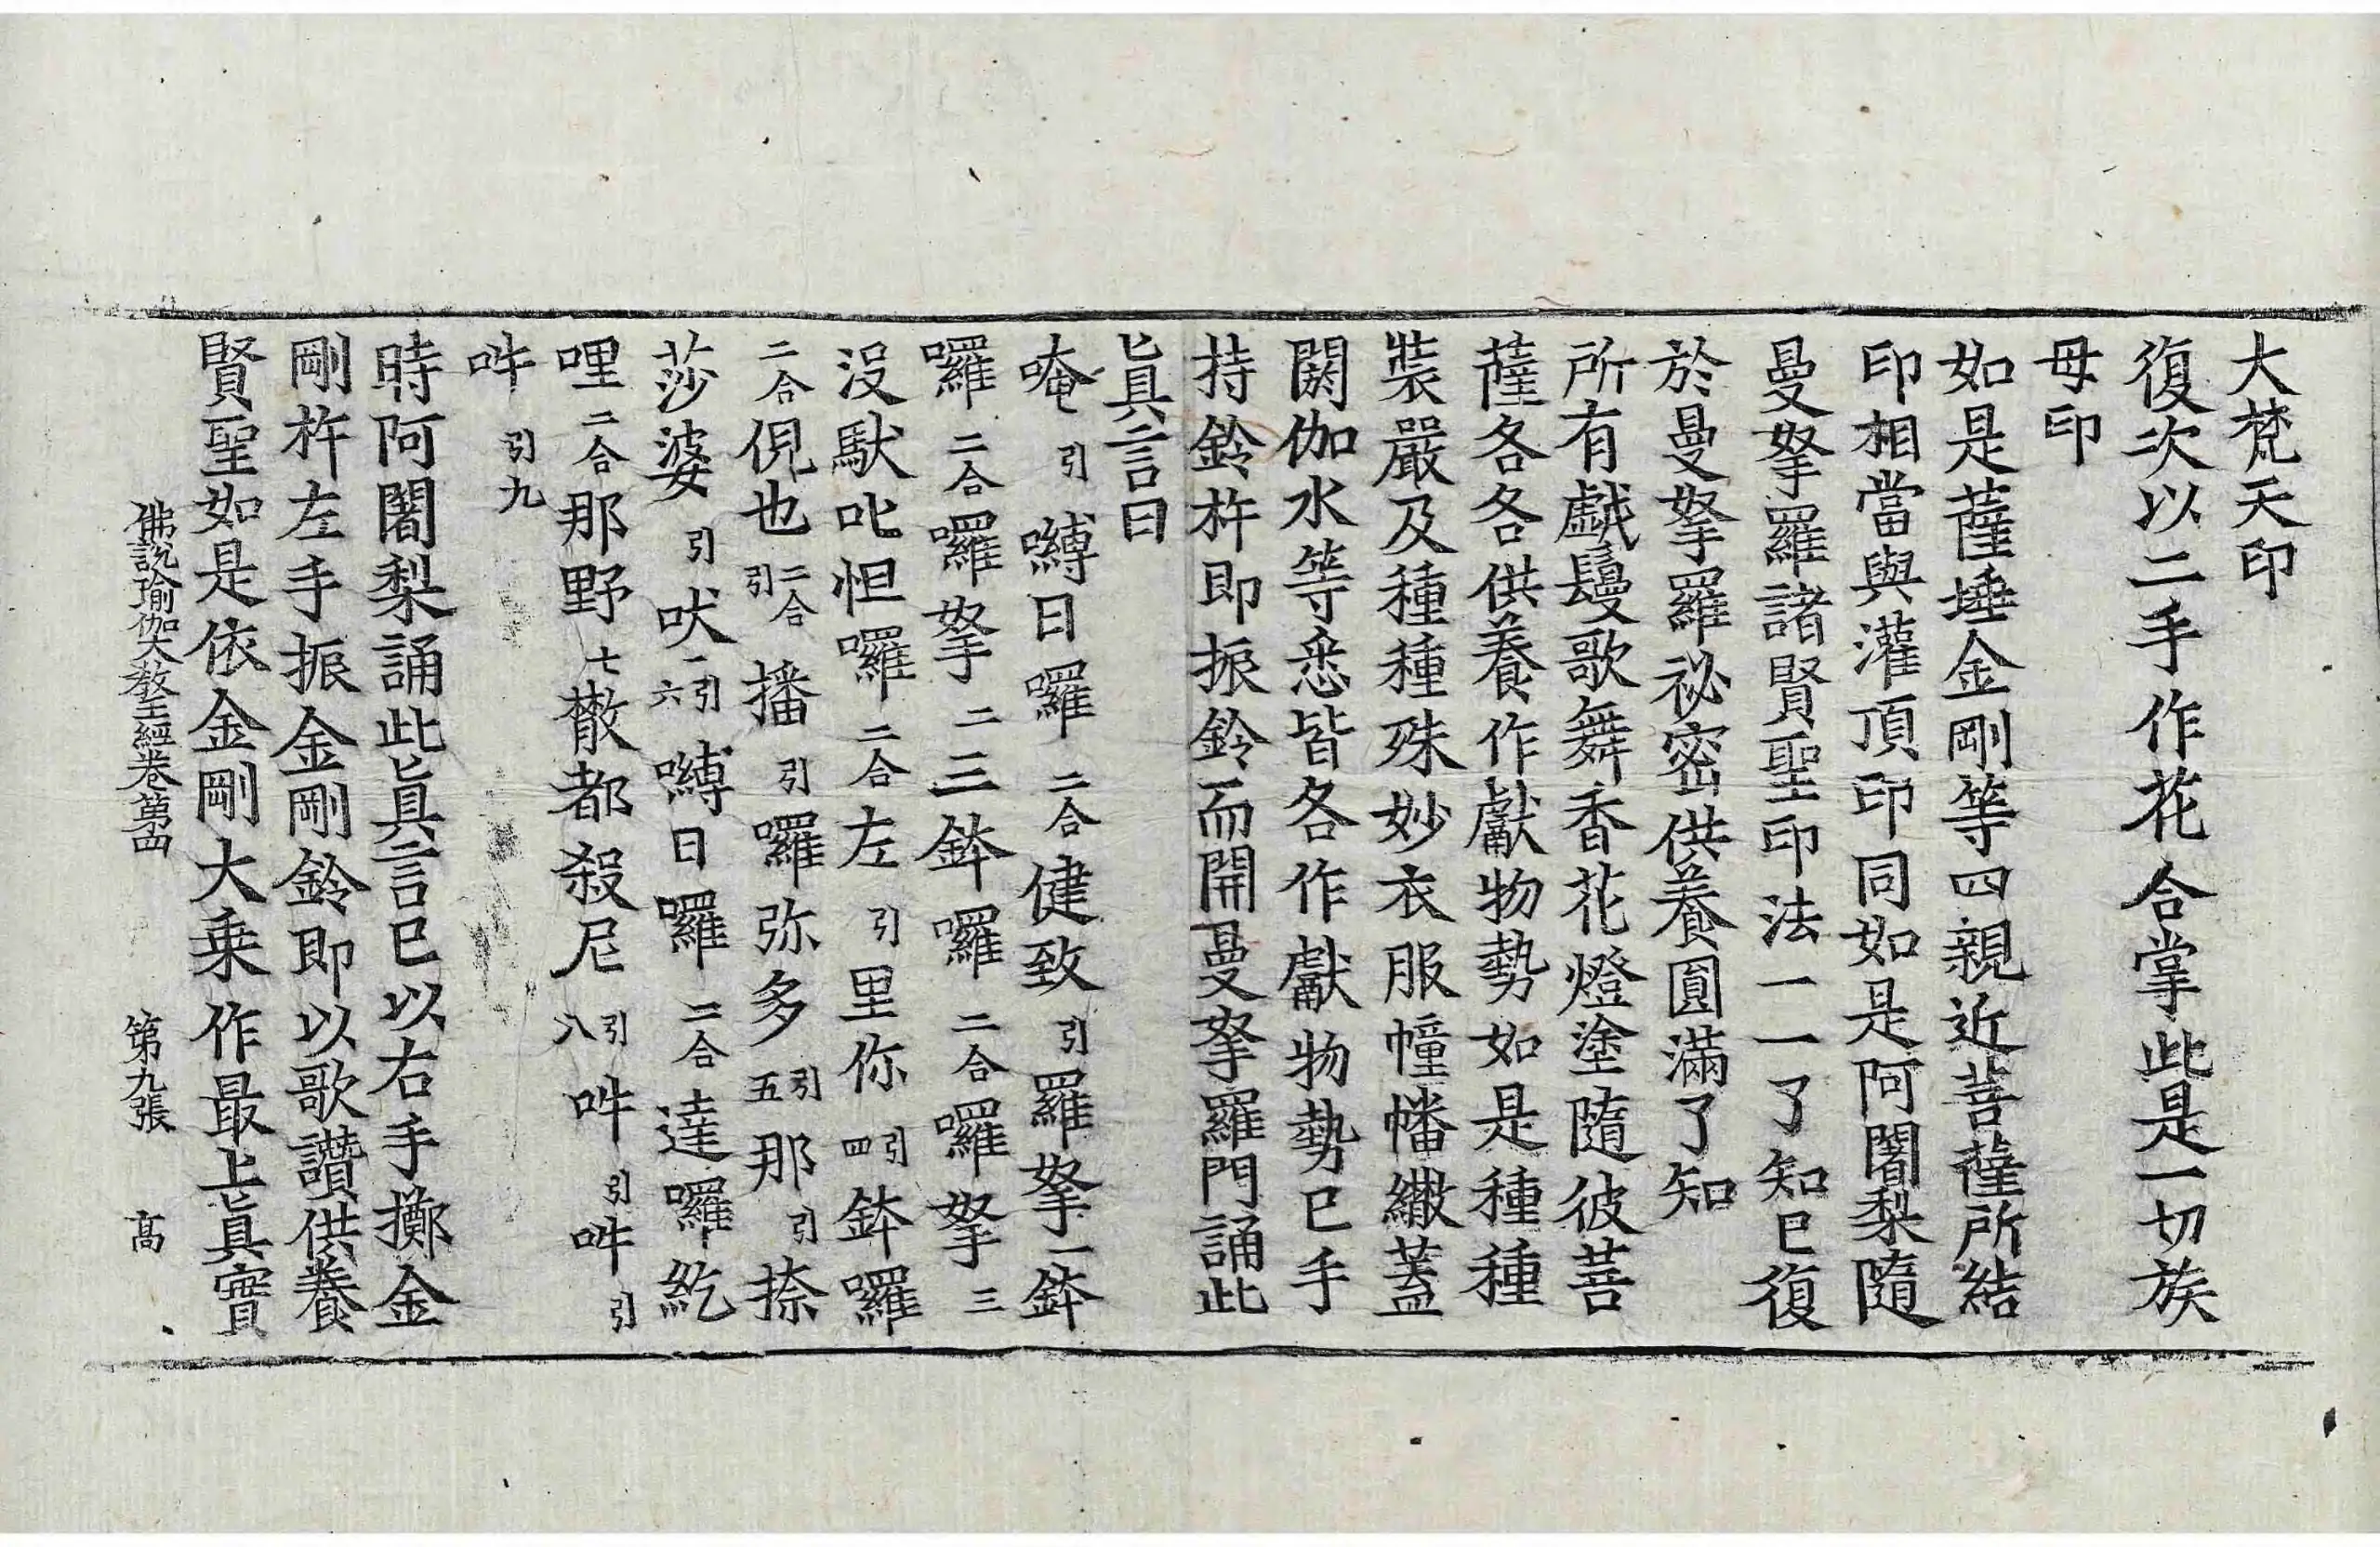 大梵天印
復次以二手作花合掌此是一切族
母印
如是薩埵金剛等四親近菩薩所結
印相當與灌頂印同如是阿闍梨隨
曼拏羅諸賢聖印法一一了知已復
於曼拏羅祕密供養圓滿了知
所有戱鬘歌舞香花燈塗隨彼菩
薩各各供養作獻物勢如是種種
裝嚴及種種殊妙衣服幢幡繖蓋
閼伽水等悉皆各作獻物勢已手
持鈴杵即振鈴而開曼拏羅門誦此
眞言曰
唵引嚩日囉二合健致引羅拏一鉢
囉二合囉拏二三鉢囉二合囉拏三
沒馱叱怛囉二合左引里你引四鉢囉
二合倪也二合引播引囉弥多引五那引捺
莎婆引吠引一六嚩日囉二合達囉紇
哩二合那野七散都殺尼引八吽引吽引
吽引九
時阿闍梨誦此眞言已以右手擲金
剛杵左手振金剛鈴即以歌讚供養
賢聖如是依金剛大乗作最上眞實
佛說瑜伽大敎王經卷第四 第九張 高